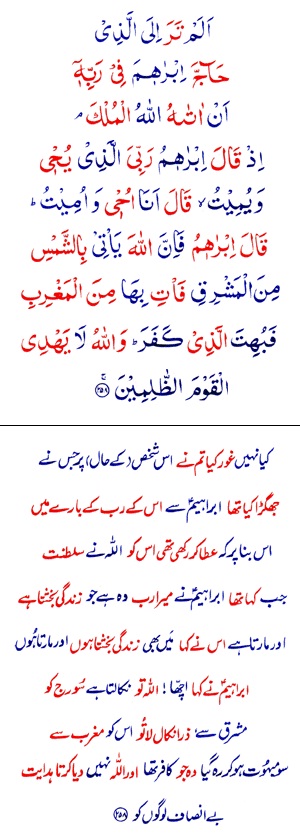 اَلَمۡ تَرَ اِلَى الَّذِىۡ
حَآجَّ اِبۡرٰهٖمَ فِىۡ رَبِّهٖۤ
اَنۡ اٰتٰٮهُ اللّٰهُ الۡمُلۡكَ‌ۘ
اِذۡ قَالَ اِبۡرٰهٖمُ رَبِّىَ الَّذِىۡ يُحۡىٖ
وَيُمِيۡتُۙ قَالَ اَنَا اُحۡىٖ وَاُمِيۡتُ‌ؕ
قَالَ اِبۡرٰهٖمُ فَاِنَّ اللّٰهَ يَاۡتِىۡ بِالشَّمۡسِ
مِنَ الۡمَشۡرِقِ فَاۡتِ بِهَا مِنَ الۡمَغۡرِبِ
فَبُهِتَ الَّذِىۡ كَفَرَ‌ؕ وَاللّٰهُ لَا يَهۡدِى
الۡقَوۡمَ الظّٰلِمِيۡنَ‌ۚ ﴿۲۵۸﴾
کیا نہیں غور کیا تم نے اس شخص (کے حال) پر جس نے
جھگڑا کیا تھا ابراہیمؑ سے اس کے رب کے بارے میں
اس بنا پر کہ عطا کر رکھی تھی اس کو اللہ نے سلطنت
جب کہا تھا ابراہیمؑ نے میرا رب وہ ہے جو زندگی بخشتا ہے
اور مارتا ہے اس نے کہا میں بھی زندگی بخشتا ہوں اور مارتا ہُوں
ابراہیمؑ نے کہا اچھا! اللہ تو نکالتا ہے سُورج کو
مشرق سے، ذرا نکال لا تُو اس کو مغرب سے
سو مبہُوت ہو کر رہ گیا وہ جو کافر تھا اور اللہ نہیں دیا کرتا ہدایت
بے انصاف لوگوں کو ﴿۲۵۸﴾